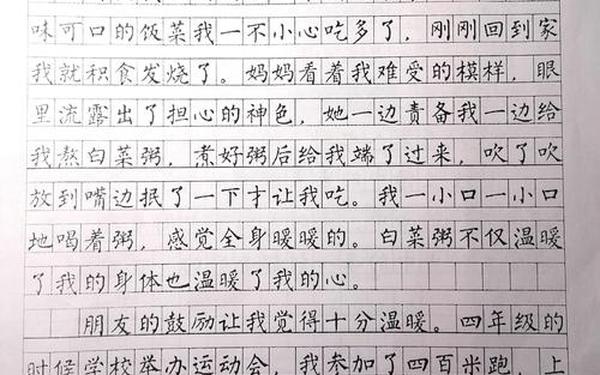 味可口的饭菜我一不小心吃多了，刚刚回到家
我就积食发烧了。妈妈看着我难受的模样，眼
里流露出了担心的神色，她一边责备我一边给
我熬白菜粥，煮好粥后给我端了过来，吹了吹
放到嘴边抿了一下才让我吃。我一小口一小口
地喝着粥，感觉全身暖暖的。白菜粥不仅温暖
了我的身体也温暖了我的心。
朋友的鼓励让我觉得十分温暖。四年级的
时候学校举办运动会，我参加了四百米跑，上